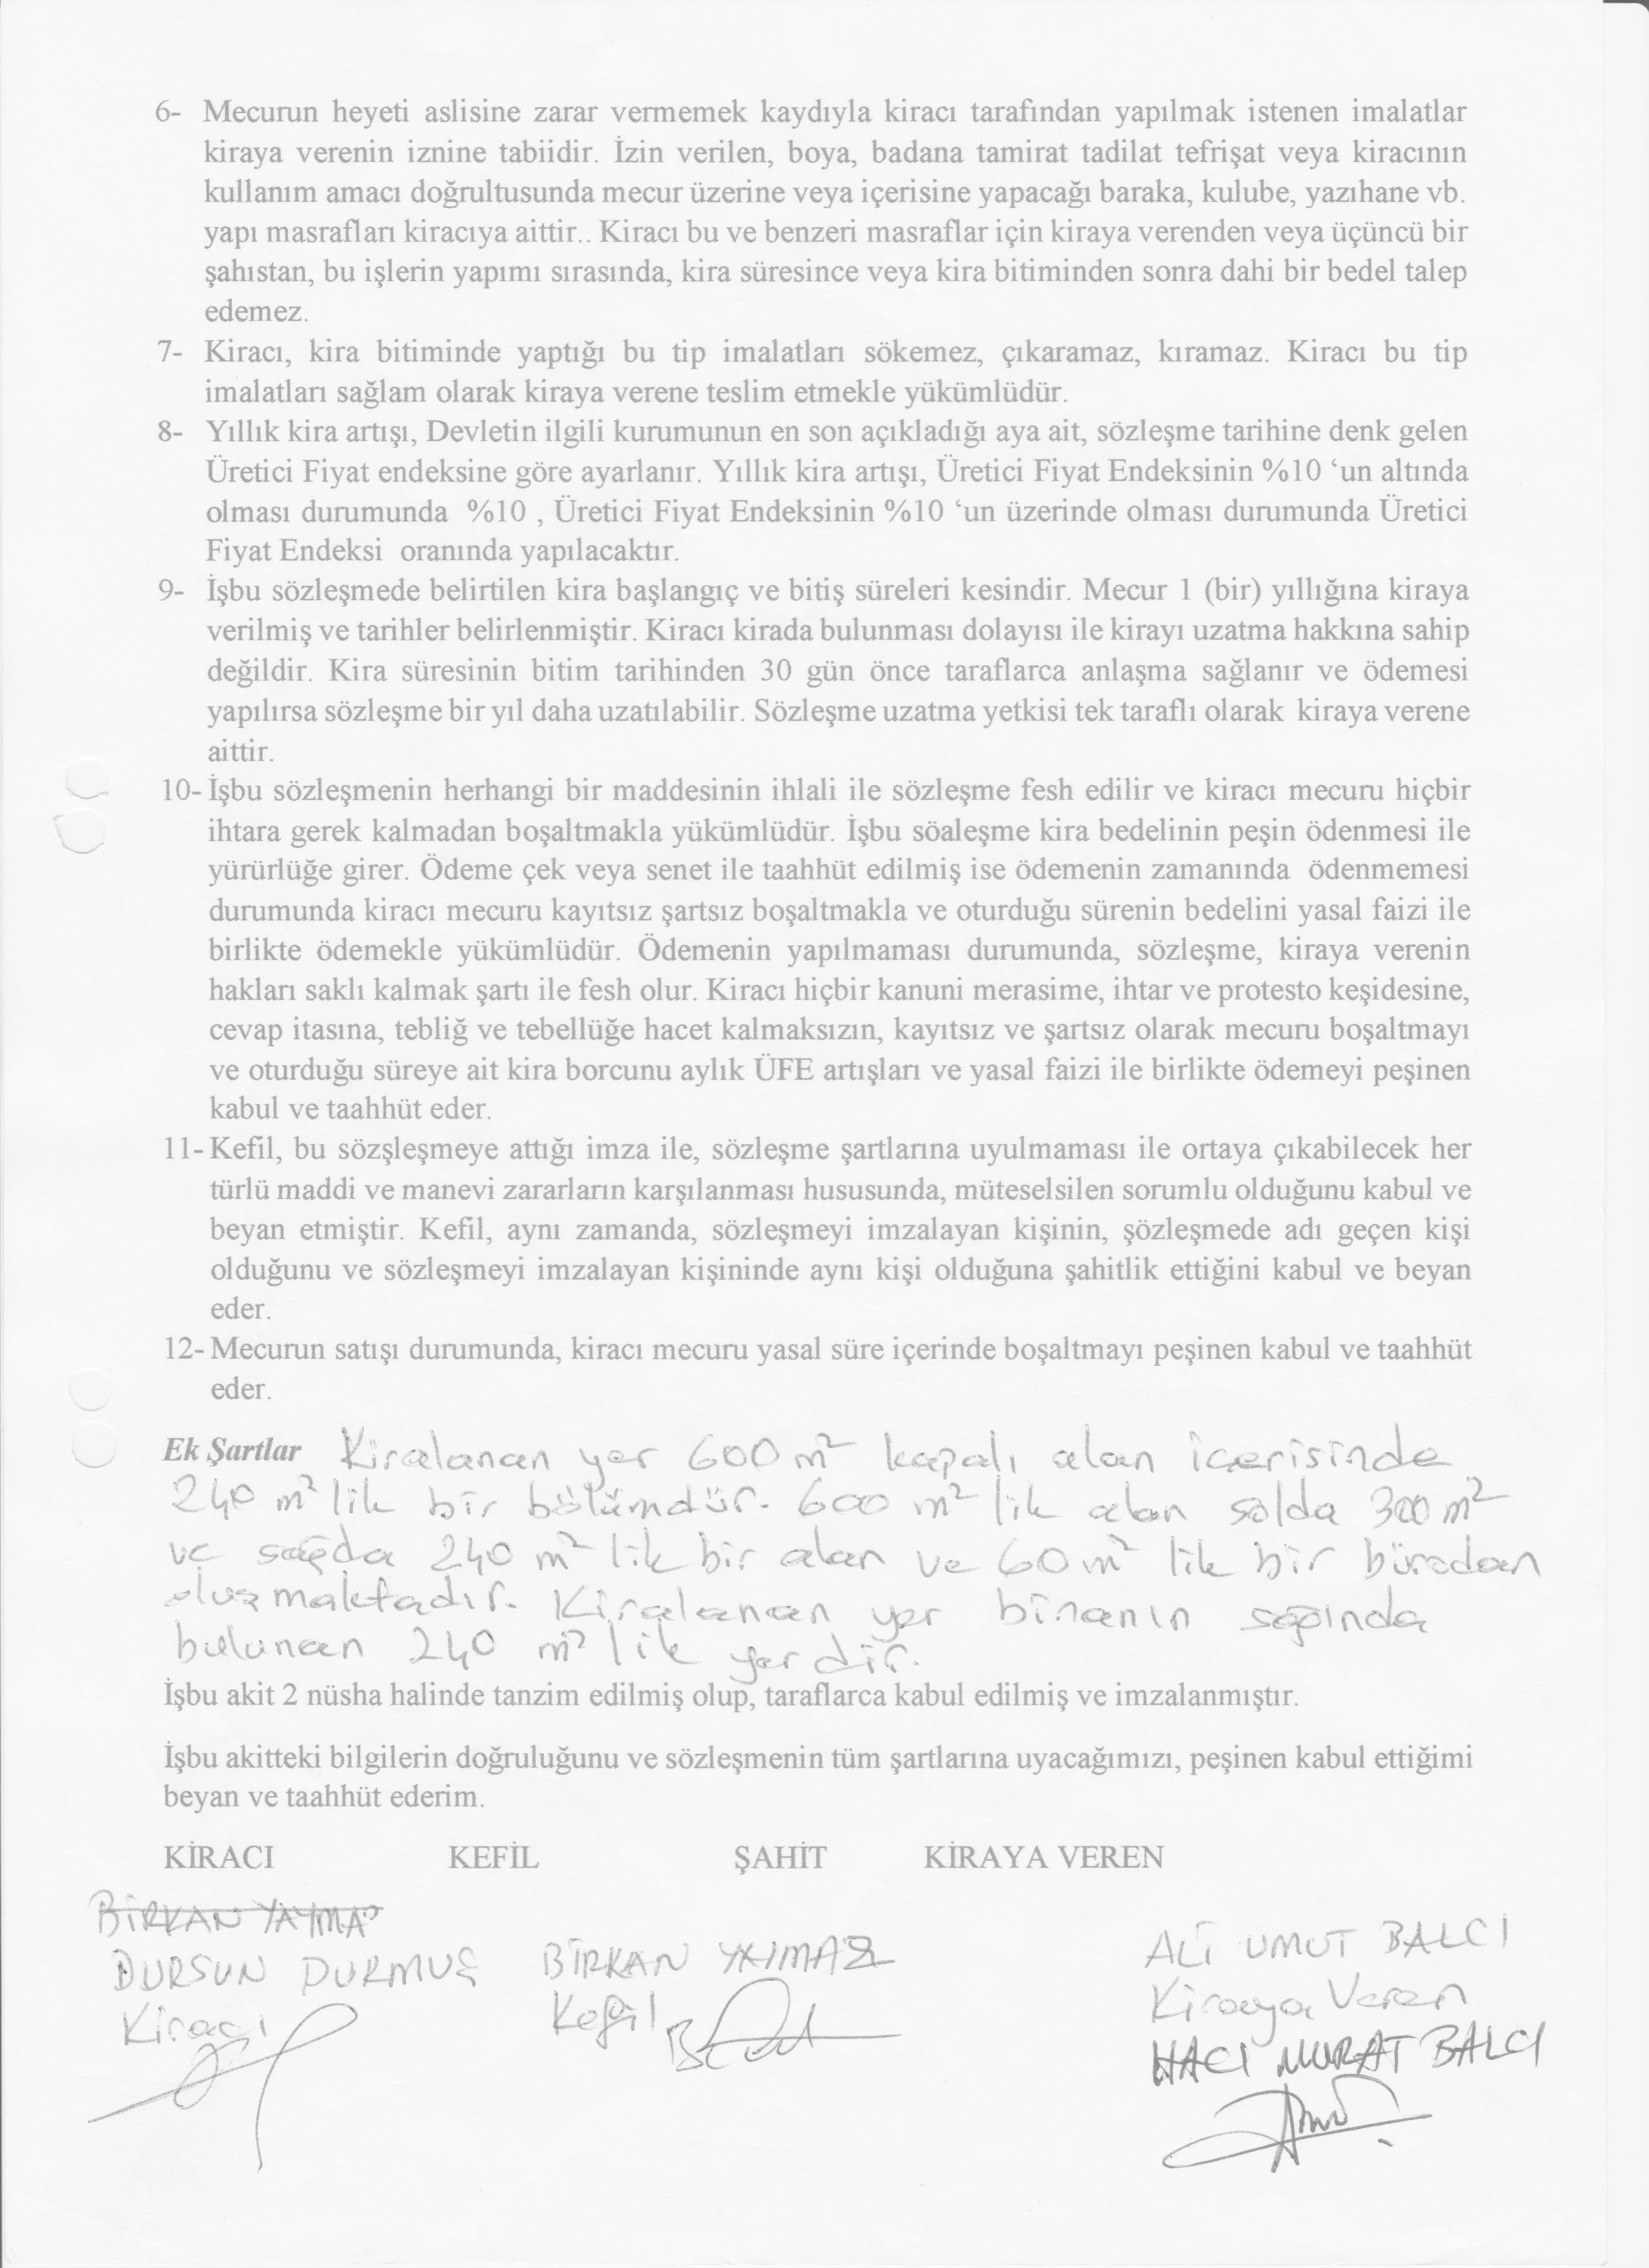 6- Mecurun heyeti aslisine zarar vermemek kaydıyla kiracı tarafından yapılmak istenen imalatlar
kiraya verenin iznine tabiidir. İzin verilen, boya, badana tamirat tadilat tefrişat veya kiracının
kullanım amacı doğrultusunda mecur üzerine veya içerisine yapacağı baraka, kulube, yazıhane vb.
yapı masrafları kiracıya aittir.. Kiracı bu ve benzeri masraflar için kiraya verenden veya üçüncü bir
şahıstan, bu işlerin yapımı sırasında, kira süresince veya kira bitiminden sonra dahi bir bedel talep
edemez.
7- Kiracı, kira bitiminde yaptığı bu tip imalatları sökemez, çıkaramaz, kıramaz. Kiracı bu tip
imalatları sağlam olarak kiraya verene teslim etmekle yükümlüdür.
8- Yıllık kira artışı, Devletin ilgili kurumunun en son açıkladığı aya ait, sözleşme tarihine denk gelen
Üretici Fiyat endeksine göre ayarlanır. Yıllık kira artışı, Üretici Fiyat Endeksinin %10 ‘un altında
olması durumunda %10 , Üretici Fiyat Endeksinin %10 ‘un üzerinde olması durumunda Üretici
Fiyat Endeksi oranında yapılacaktır.
9- İşbu sözleşmede belirtilen kira başlangıç ve bitiş süreleri kesindir. Mecur 1 (bir) yıllığına kiraya
verilmiş ve tarihler belirlenmiştir. Kiracı kirada bulunması dolayısı ile kirayı uzatma hakkına sahip
değildir. Kira süresinin bitim tarihinden 30 gün önce taraflarca anlaşma sağlanır ve ödemesi
yapılırsa sözleşme bir yıl daha uzatılabilir. Sözleşme uzatma yetkisi tek taraflı olarak kiraya verene
aittir.
10- İşbu sözleşmenin herhangi bir maddesinin ihlali ile sözleşme fesh edilir ve kiracı mecuru hiçbir
ihtara gerek kalmadan boşaltmakla yükümlüdür. İşbu söaleşme kira bedelinin peşin ödenmesi ile
yürürlüğe girer. Ödeme çek veya senet ile taahhüt edilmiş ise ödemenin zamanında ödenmemesi
durumunda kiracı mecuru kayıtsız şartsız boşaltmakla ve oturduğu sürenin bedelini yasal faizi ile
birlikte ödemekle yükümlüdür. Ödemenin yapılmaması durumunda, sözleşme, kiraya verenin
hakları saklı kalmak şartı ile fesh olur. Kiracı hiçbir kanuni merasime, ihtar ve protesto keşidesine,
cevap itasına, tebliğ ve tebellüğe hacet kalmaksızın, kayıtsız ve şartsız olarak mecuru boşaltmayı
ve oturduğu süreye ait kira borcunu aylık ÜFE artışları ve yasal faizi ile birlikte ödemeyi peşinen
kabul ve taahhüt eder.
11- Kefil, bu sözşleşmeye attığı imza ile, sözleşme şartlarına uyulmaması ile ortaya çıkabilecek her
türlü maddi ve manevi zararların karşılanması hususunda, müteselsilen sorumlu olduğunu kabul ve
beyan etmiştir. Kefil, aynı zamanda, sözleşmeyi imzalayan kişinin, şözleşmede adı geçen kişi
olduğunu ve sözleşmeyi imzalayan kişininde aynı kişi olduğuna şahitlik ettiğini kabul ve beyan
eder.
12- Mecurun satışı durumunda, kiracı mecuru yasal süre içerinde boşaltmayı peşinen kabul ve taahhüt
eder.
Ek Şartlar Kiralanan yer 600 m² kapalı alan içerisinde
240 m² lik bir bölümdür. 600 m² lik alan solda 300 m²
ve sağda 240 m² lik bir alan ve 60 m² lik bir bürodan
oluşmaktadır. Kiralanan yer binanın sağında
bulunan 240 m² lik yerdir.
İşbu akit 2 nüsha halinde tanzim edilmiş olup, taraflarca kabul edilmiş ve imzalanmıştır.
İşbu akitteki bilgilerin doğruluğunu ve sözleşmenin tüm şartlarına uyacağımızı, peşinen kabul ettiğimi
beyan ve taahhüt ederim.
KİRACI KEFİL ŞAHİT KİRAYA VEREN
BİRKAN
DURSUN DURMUŞ BİRKAN YILMAZ ALİ UMUT BALCI
Kiracı Kefil Kiraya Veren
HACI MURAT BALCI